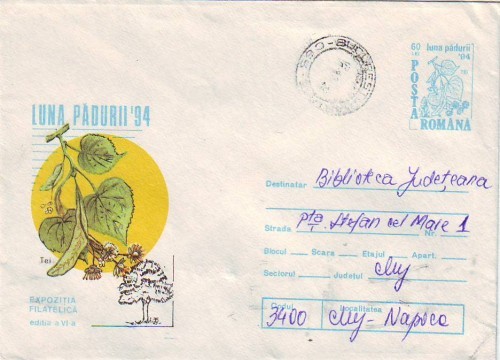 LUNA PĂDURII '94
Tei
EXPOZIȚIA
FILATELICĂ
ediția a VI-a
BUCUREȘTI
60
luna pădurii
'94
POSTA
ROMÂNA
Destinatar Biblioteca Județeana
Strada pța. Ștefan cel Mare 1 Nr.
Blocul Scara Etajul Apart.
Sectorul Județul Cluj
Codul Localitatea
3400 Cluj-Napoca